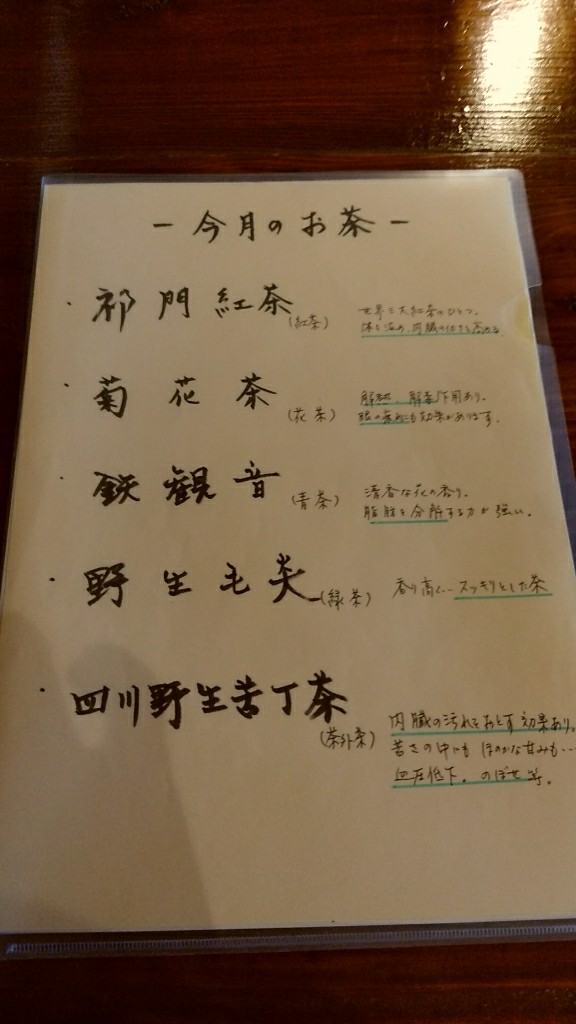 －今月のお茶－
・祁門紅茶(紅茶)
世界三大紅茶のひとつ。
体を温め、内臓の働きを高める
・菊花茶(花茶)
解熱、解毒作用あり。
眼の疲れにも効果があります。
・鉄観音(青茶)
清香な花の香り。
脂肪を分解する力が強い。
・野生毛尖(緑茶)
香り高く…スッキリとした茶
・四川野生苦丁茶
(茶外茶)
内臓の汚れをおとす効果あり。
苦さの中にもほのかな甘みも…
血圧低下。のぼせ等。